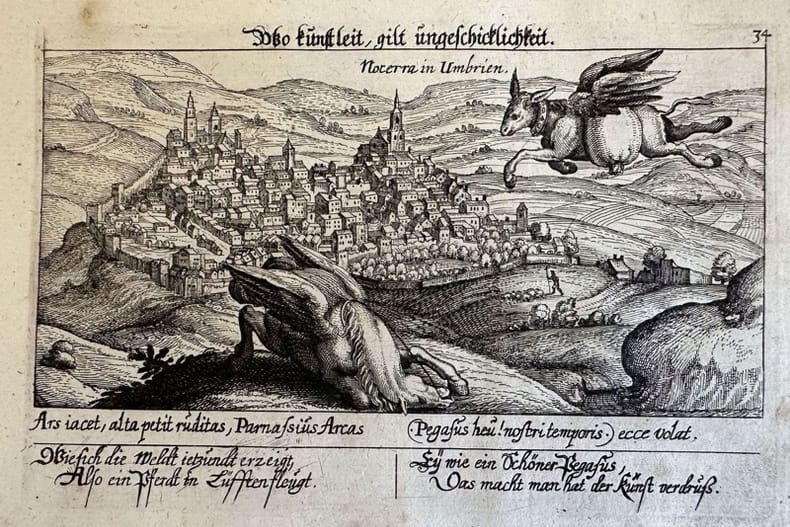 Wo kunst leit, gilt ungeschicklichkeit.
34
Nocerra in Umbrien.
Ars iacet, alta petit ruditas, Parnassius Arcas
(Pegasus heu! nostri temporis.) ecce volat.
Wie sich die Weldt ietzundt erzeigt,
Also ein Pferdt in Lüfften fleugt.
Ey wie ein Schöner Pegasus,
Das macht man hat der Kunst verdruß.